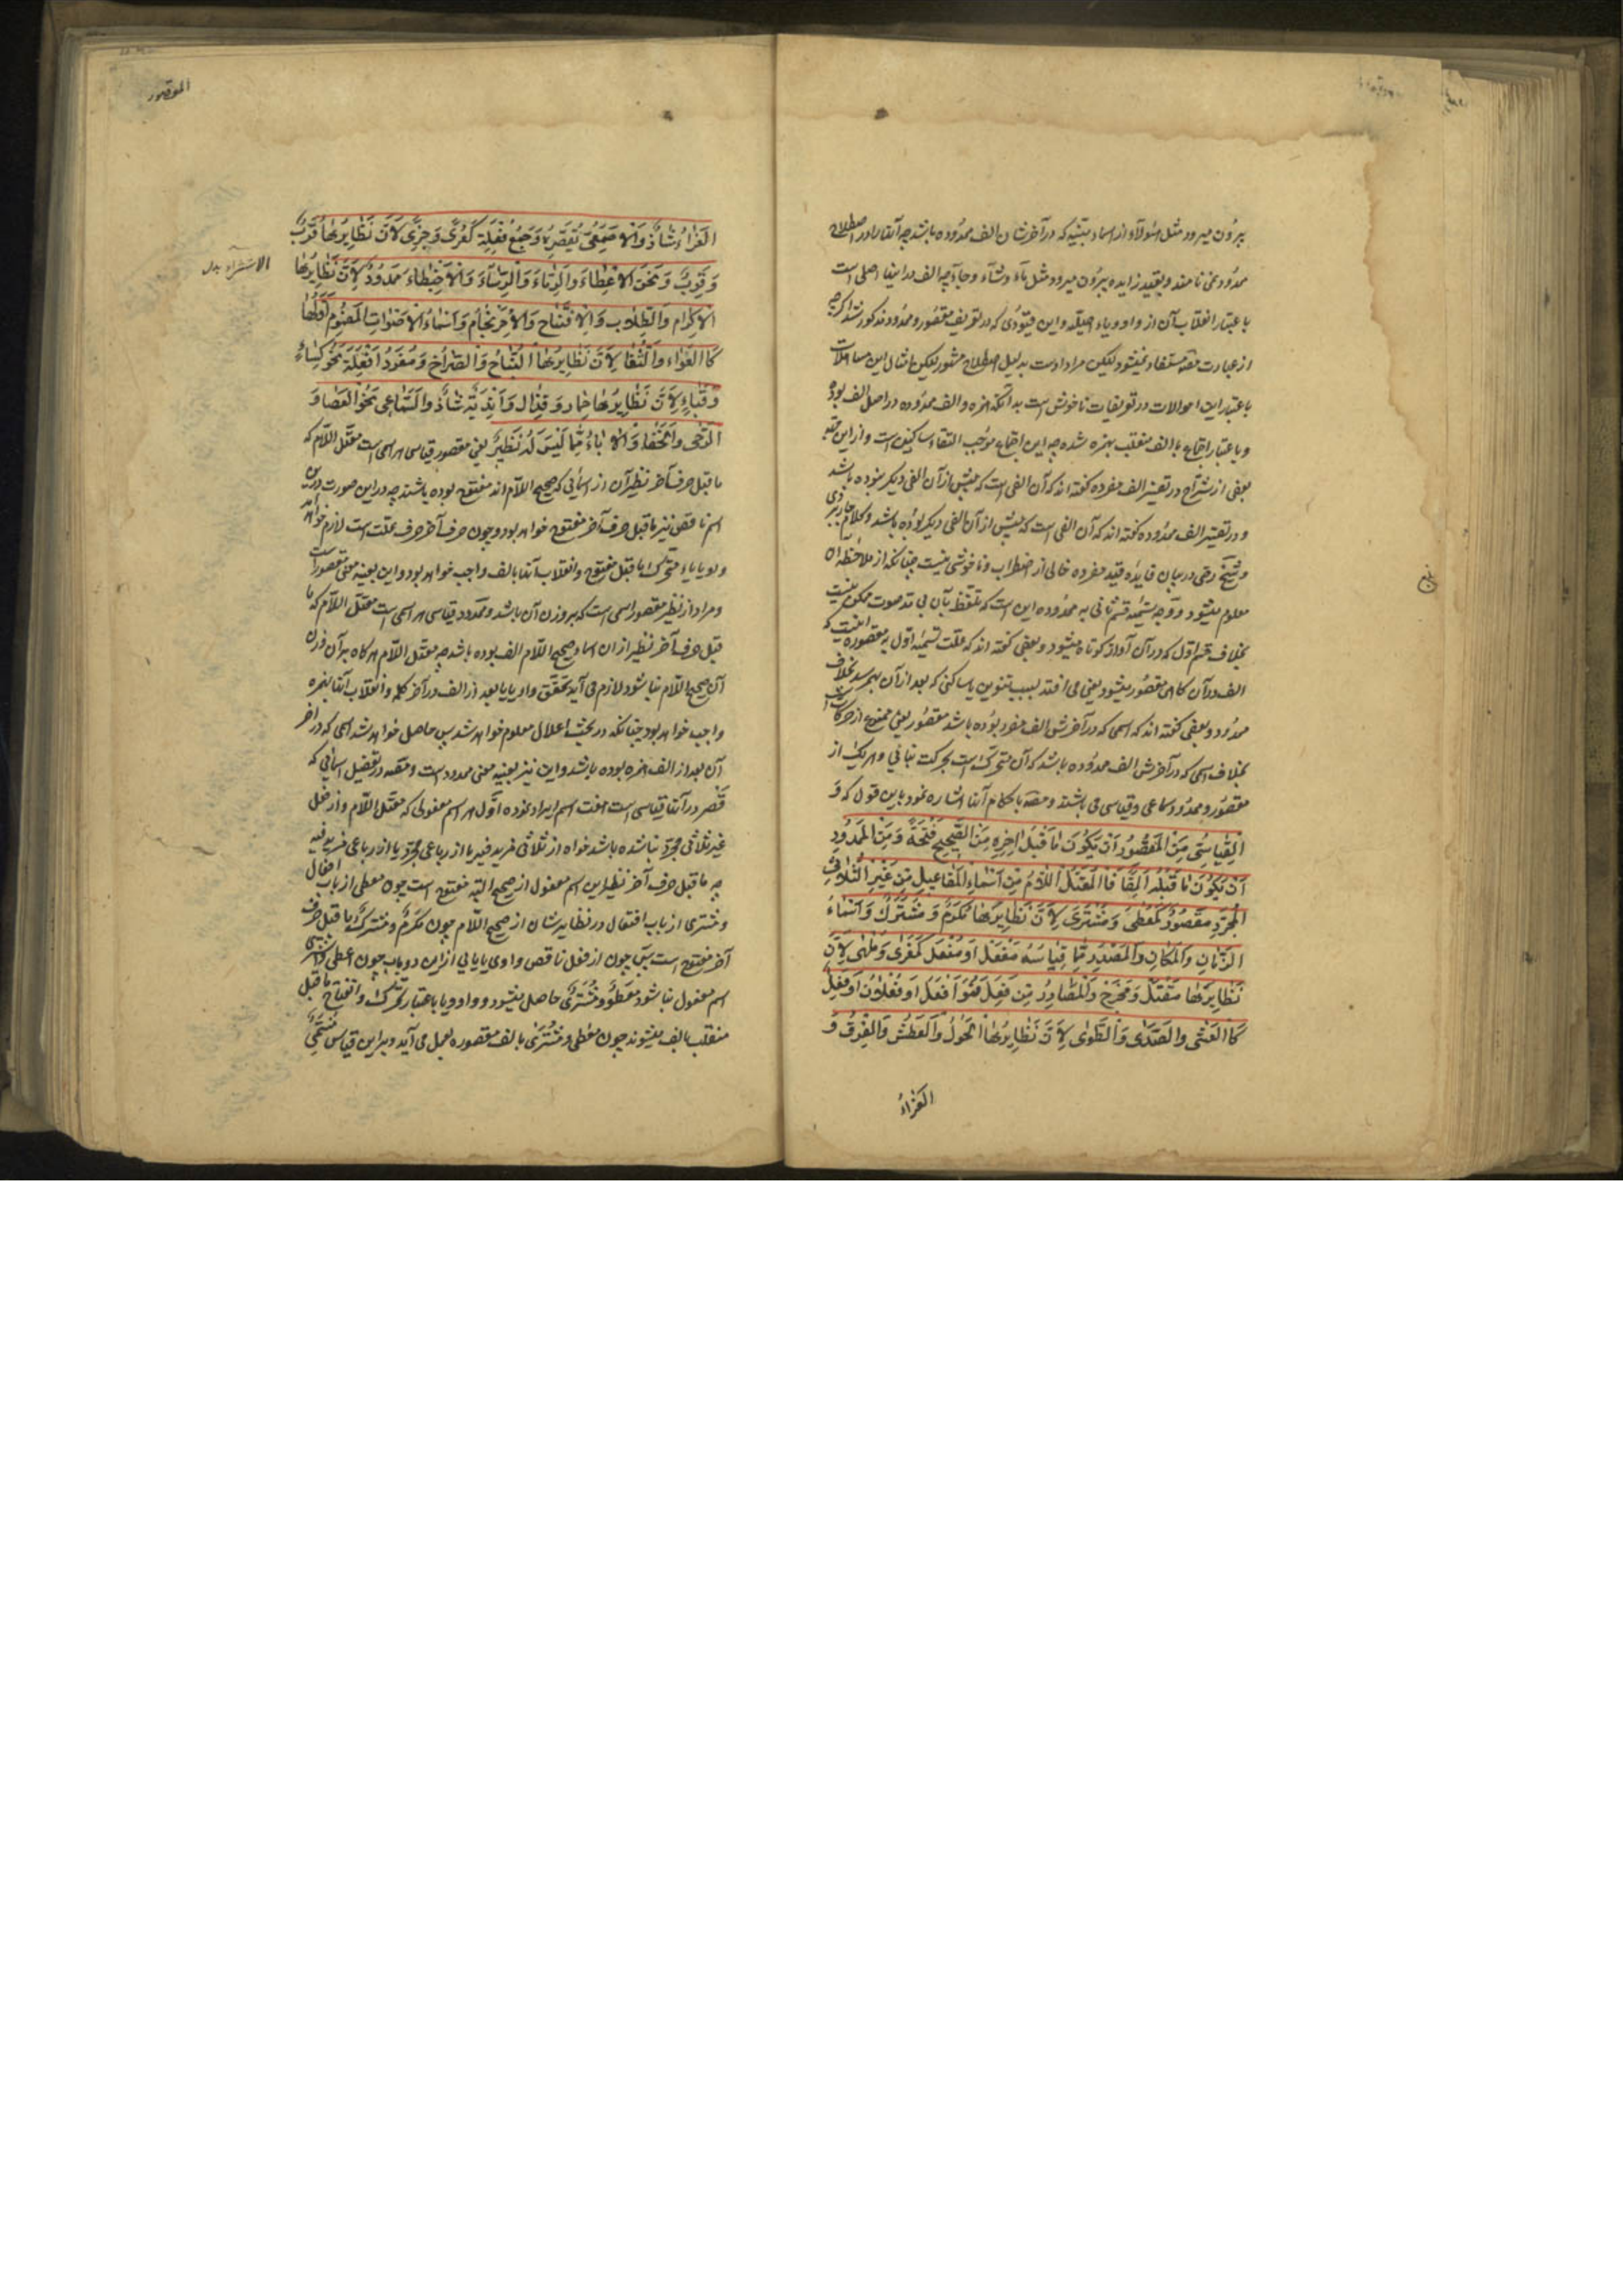 بیرون میرود مثل هؤلاء از اسماء مبنیه که در آخرشان الف ممدوده باشد چه آنها را در اصطلاح
ممدود نمی نامند و بقید زایده بیرون میرود مثل ماء و شاء و جاء چه الف در اینها اصلی است
باعتبار انقلاب آن از واو و یاء اصلیه و این قیودی که در تعریف مقصور و ممدود مذکور شد اگرچه
از عبارت مصنف مستفاد نمیشود لیکن مراد اوست بدلیل اصطلاح مشهور لیکن امثال این مساهلات
باعتبار این احوالات در تعریفات ناخوش است بدانکه همزه و الف ممدوده در اصل الف بوده
و باعتبار اجتماع با الف منقلب بهمزه شده چه این اجتماع موجب التقاء ساکنین است و از این جهة
بعضی از شراح در تفسیر الف مفرده گفته اند که آن الفی است که پیش از آن الفی دیگر نبوده باشد
و در تفسیر الف ممدوده گفته اند که آن الفی است که پیش از آن الفی دیگر بوده باشد و کلام جاربردی
و شیخ رضی در بیان فایده قید مفرده خالی از اضطراب و ناخوشی نیست چنانکه از ملاحظه آن
معلوم میشود و وجه تسمیه قسم ثانی به ممدوده این است که تلفظ بآن بی مد صوت ممکن نیست
بخلاف قسم اول که در آن آواز کوتاه میشود و بعضی گفته اند که علت تسمیه اول به مقصوره اینست که
الف در آن گاهی مقصور میشود یعنی می افتد بسبب تنوین یا ساکنی که بعد از آن بهم رسد بخلاف
ممدود و بعضی گفته اند که اسمی که در آخرش الف مفرد بوده باشد مقصور یعنی ممنوع از حرکات است
بخلاف اسمی که در آخرش الف ممدوده باشد که آن متحرک است بحرکت بنائی و هر یک از
مقصور و ممدود سماعی و قیاسی می باشند و مصنف باحکام آنها اشاره نمود باین قول که وَ
الْقِیاسِیُّ مِنَ الْمَقْصُورِ اَنْ یَکُونَ ما قَبْلَ اخِرِهِ مِنَ الصَّحِیحِ فَتْحَةً وَ مِنَ الْمَمْدُودِ
اَنْ یَکُونَ ما قَبْلَهُ اَلِفًا فَالْمُعْتَلُّ اللّامُ مِنْ اَسْماءِ الْمَفاعِیلِ مِنْ غَیْرِ الثُّلاثِیِّ
الْمُجَرَّدِ مَقْصُورٌ کَمُعْطیً وَ مُشْتَریً لِاَنَّ نَظایِرَهُما مُکْرَمٌ وَ مُشْتَرَکٌ وَ اَسْماءُ
الزَّمانِ وَ الْمَکانِ وَ الْمَصْدَرِ مِمّا قِیاسُهُ مَفْعَلٌ اَوْ مُفْعَلٌ کَمَغْزیً وَ مَلْهیً لِاَنَّ
نَظایِرَهُما مَقْتَلٌ وَ مَخْرَجٌ وَ الْمَصادِرُ مِنْ فَعِلَ فَهُوَ اَفْعَلُ اَوْ فَعْلانُ اَوْ فَعِلٌ
کَالْعَشی وَ الصَّدی وَ الطَّوی لِاَنَّ نَظایِرَهَا الْحَوَلُ وَ الْعَطَشُ وَ الْفَرَقُ وَ
الغَرَاءُ
المقصور
الْغَراءُ شاذٌّ وَ الْاَصْمَعِیُّ یَقْصُرُهُ وَ جَمْعُ فُعْلَةٍ کَعُریً وَ جِزیً لِاَنَّ نَظایِرَهُما قُرَبٌ
وَ قِرَبٌ وَ نَحْوُ الْاِعْطاءِ وَ الرِّماءِ وَ الْاِشْتِراءِ وَ الْاِحْبِنْطاءِ مَمْدُودٌ لِاَنَّ نَظایِرَها
الاشتراء بدل
الْاِکْرامُ وَ الطِّلابُ وَ الْاِفْتِتاحُ وَ الْاِحْرِنْجامُ وَ اَسْماءُ الْاَصْواتِ الْمَضْمُومِ اَوَّلُها
کَالْعُواءِ وَ الثُّغاءِ لِاَنَّ نَظایِرَهُمَا النُّباحُ وَ الصُّراخُ وَ مُفْرَدُ اَفْعِلَةٍ نَحْوُ کِساءٍ
وَ قَباءٍ لِاَنَّ نَظایِرَهُما حِمارٌ وَ قَذالٌ وَ اَنْدِیَةٌ شاذٌّ وَ السَّماعِی نَحْوُ الْعَصا وَ
الرَّحی وَ الْخَفاءِ وَ الْاَباءِ مِمّا لَیْسَ لَهُ نَظِیرٌ یعنی مقصور قیاسی هر اسمی است معتل اللام که
ما قبل حرف آخر نظیر آن از اسمائی که صحیح اللام اند مفتوح بوده باشند چه در این صورت در این
اسم ناقص نیز ما قبل حرف آخر مفتوح خواهد بود و چون حرف آخر حرف علت است لازم خواهد
واو یا یاء متحرک ما قبل مفتوح و انقلاب آنها بالف واجب خواهد بود و این بعینه معنی مقصور است
و مراد از نظیر مقصور اسمی است که بر وزن آن باشد و ممدود قیاسی هر اسمی است معتل اللام که ما
قبل حرف آخر نظیر از ان اسماء صحیح اللام الف بوده باشد چه معتل اللام هرگاه بر آن وزن
آن صحیح اللام بنا شود لازم می آید تحقق واو یا یا بعد از الف در آخر کلمه و انقلاب آنها بهمزه
واجب خواهد بود چنانکه در بحث اعلال معلوم خواهد شد پس حاصل خواهد شد اسمی که در آخر
آن بعد از الف همزه بوده باشد و این نیز بعینه معنی ممدود است و مصنف در تفصیل اسمائی که
قصر در آنها قیاسی است هفت اسم ایراد نموده اول هر اسم مفعولی که معتل اللام و از فعل
غیر ثلاثی مجرد بنا شده باشد خواه از ثلاثی مزید فیه یا از رباعی مجرد یا از رباعی مزید فیه
چه ما قبل حرف آخر نظیر این اسم مفعول از صحیح البته مفتوح است چون معطی از باب افعال
و مشتری از باب افتعال در نظایرشان از صحیح اللام چون مکرم و مشترک ما قبل حرف
آخر مفتوح است پس چون از فعل ناقص واوی یا یایی از این دو باب چون اعطی و اشتری
اسم مفعول بنا شود معطوٌ و مشتریٌ حاصل میشود و واو و یا باعتبار تحرک و انفتاح ما قبل
منقلب بالف میشوند چون معطی و مشتری با الف مقصوره بعمل می آید و بر این قیاس مستمی